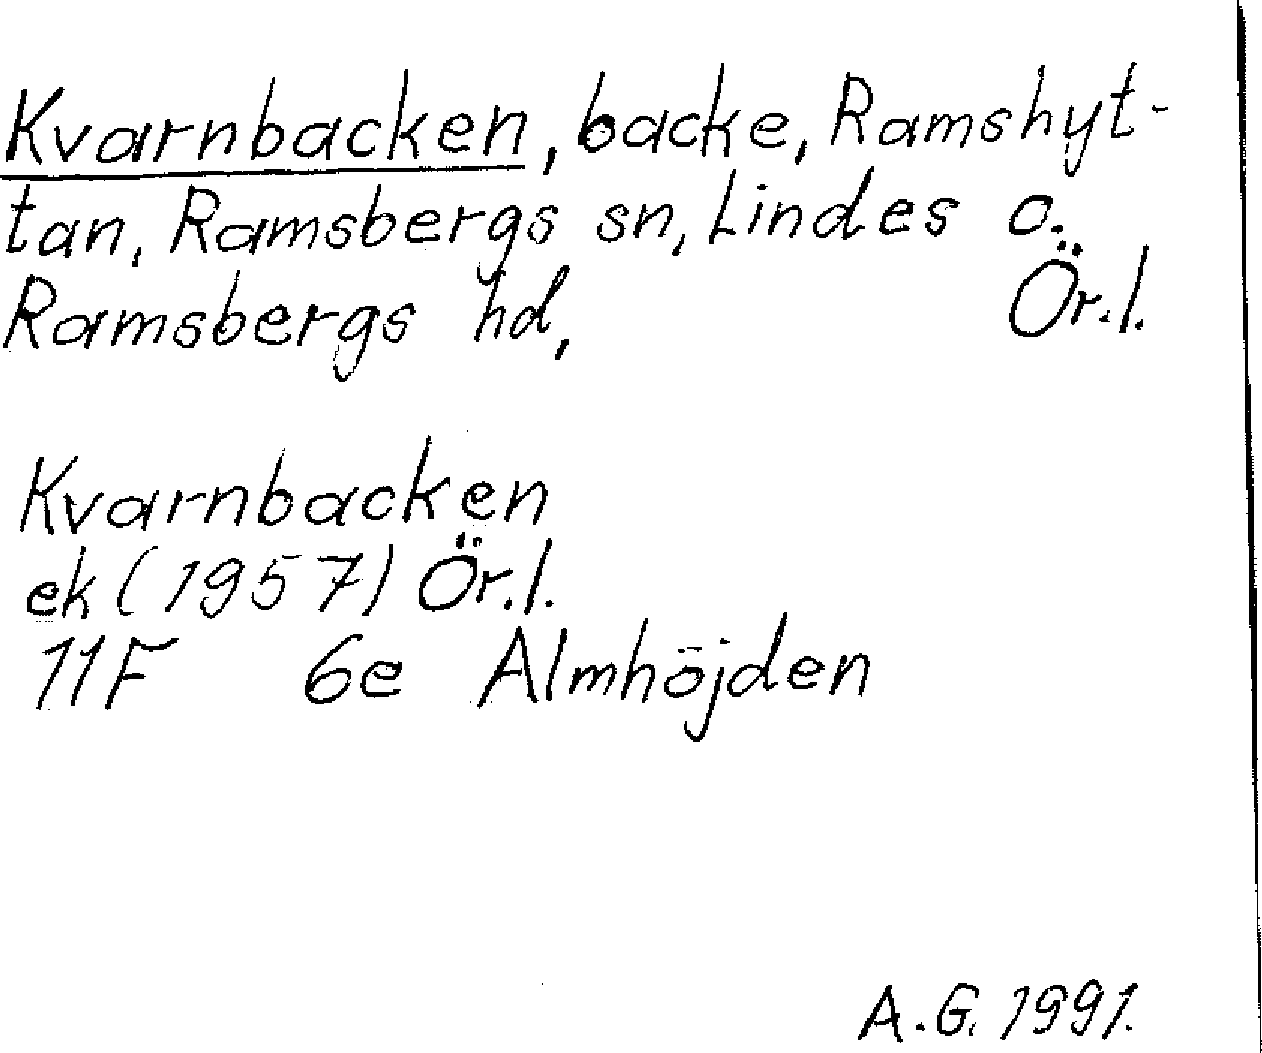 Kvarnbacken, backe, Ramshyt-
tan, Ramsbergs sn, Lindes o.
Ramsbergs hd, Ör.l.
Kvarnbacken
ek (1957) Ör.l.
11F 6e Almhöjden
A.G. 1991.